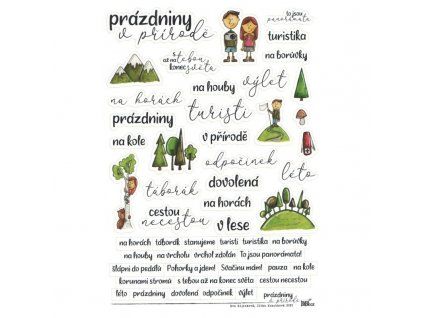 prázdniny
v přírodě
to jsou
panorámata
turistika
až na tebou
konec světa
na borůvky
na houby
výlet
na horách
turisti
prázdniny
na kole
v přírodě
odpočinek
léto
táborák
dovolená
na horách
cestou
necestou
v lese
na horách táborák stanujeme turisti turistika na borůvky
na houby na vrcholu vrchol zdolán To jsou panoramata!
šlápni do pedálů Pohorky a jdem! Svačinu mám! pauza na kole
korunami stromů s tebou až na konec světa cestou necestou
léto prázdniny dovolená odpočinek výlet prázdniny
v přírodě